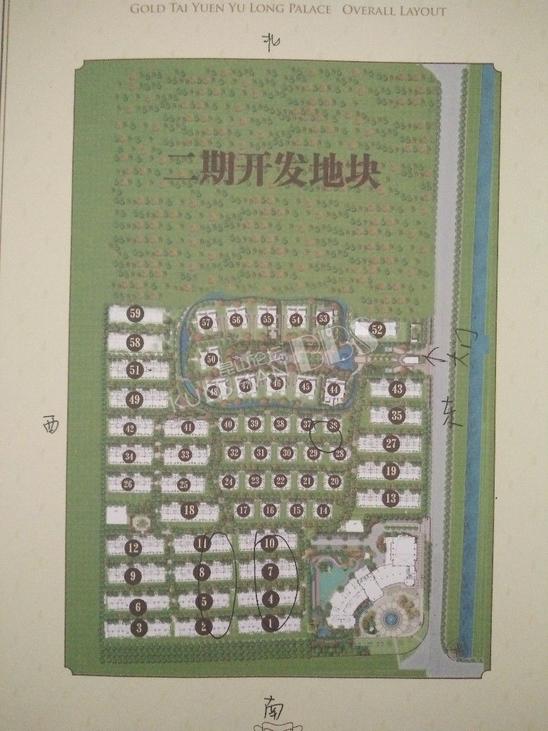 GOLD TAI YUEN YU LONG PALACE OVERALL LAYOUT
北
二期开发地块
59
57 56 55 54 53
52
58
51
50
49
48 47 46 45 44
43
大门
东
西
42 41
40 39 38 37 36
35
34 33
32 31 30 29 28
27
26 25
24 23 22 21 20
19
18
17 16 15 14
13
12 11 10
9 8 7
6 5 4
3 2 1
南